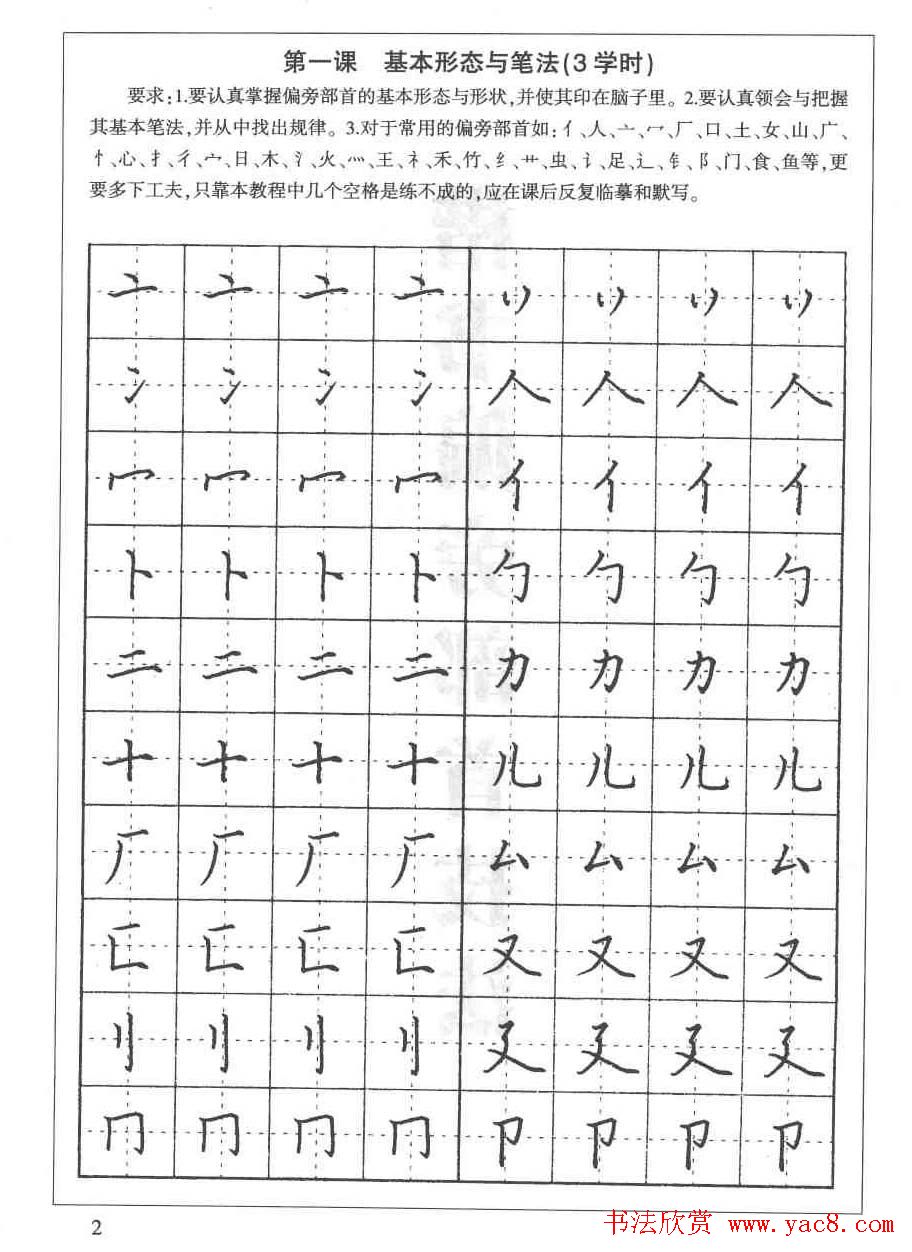 第一课 基本形态与笔法(3学时)
要求:1.要认真掌握偏旁部首的基本形态与形状,并使其印在脑子里。2.要认真领会与把握
其基本笔法,并从中找出规律。3.对于常用的偏旁部首如:亻、人、亠、冖、厂、口、土、女、山、广、
忄、心、扌、彳、宀、日、木、氵、火、灬、王、礻、禾、竹、纟、艹、虫、讠、足、辶、钅、阝、门、食、鱼等,更
要多下工夫,只靠本教程中几个空格是练不成的,应在课后反复临摹和默写。
亠 亠 亠 亠 丷 丷 丷 丷
冫 冫 冫 冫 人 人 人 人
冖 冖 冖 冖 亻 亻 亻 亻
卜 卜 卜 卜 勹 勹 勹 勹
二 二 二 二 力 力 力 力
十 十 十 十 儿 儿 儿 儿
厂 厂 厂 厂 厶 厶 厶 厶
匚 匚 匚 匚 又 又 又 又
刂 刂 刂 刂 廴 廴 廴 廴
冂 冂 冂 冂 卩 卩 卩 卩
2
书法欣赏 www.yac8.com